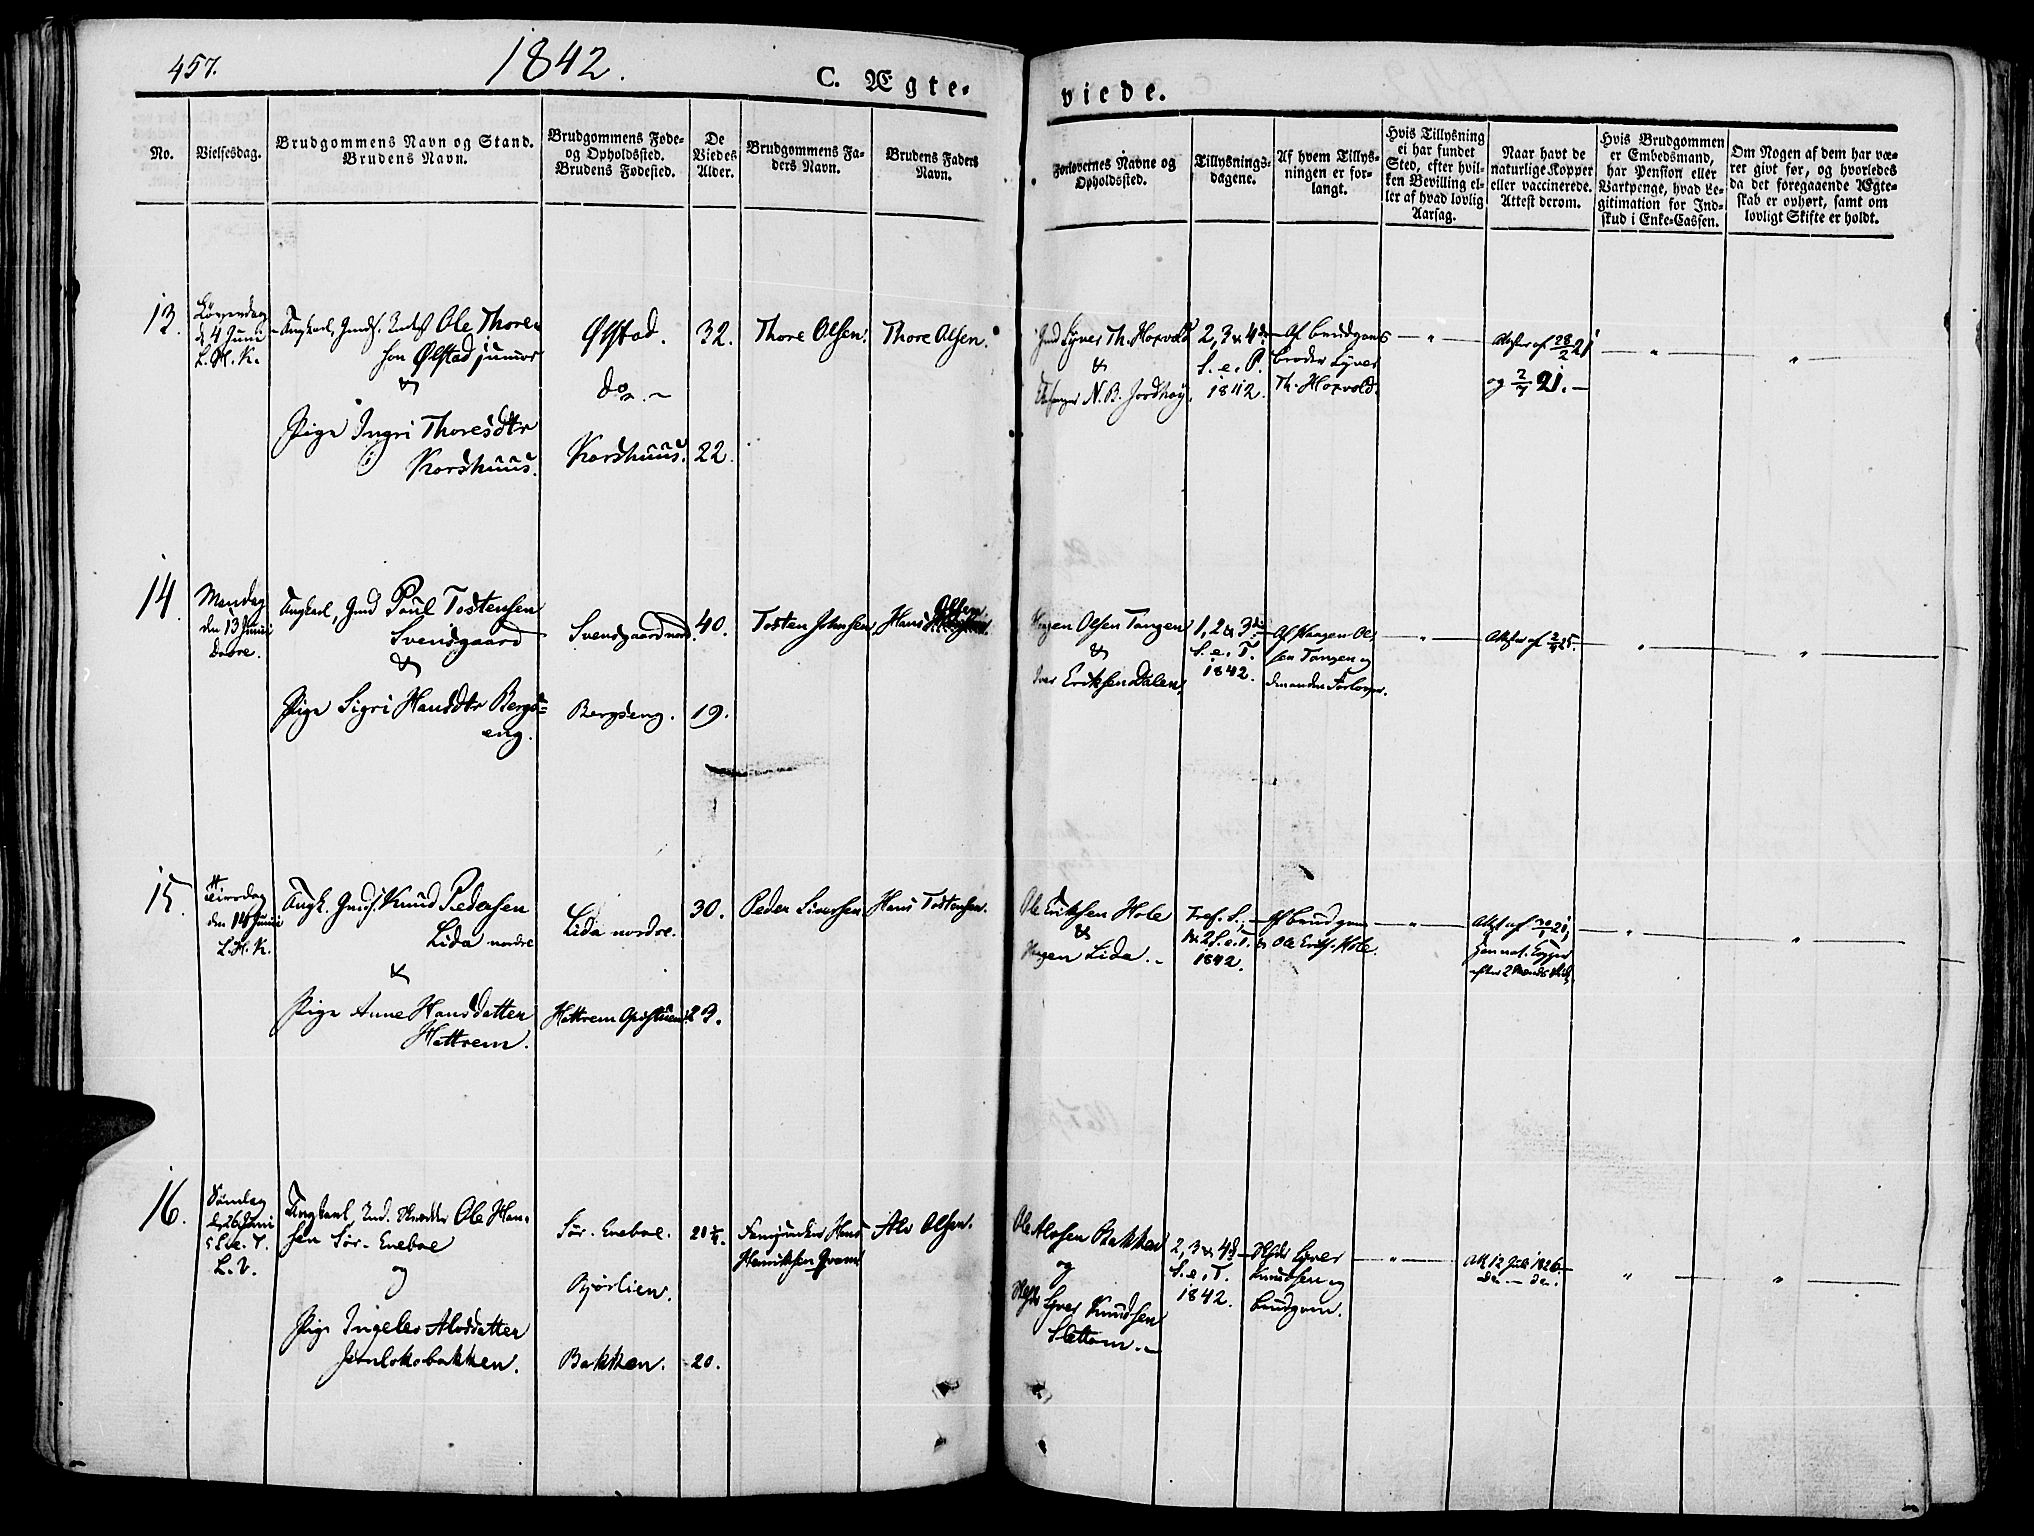 457.
1842.
C. Ægte-
viede.
No.
Vielsesdag.
Brudgommens Navn og Stand.
Brudens Navn.
Brudgommens Føde-
og Opholdssted.
Brudens Fødested.
De
Viedes
Alder.
Brudgommens Fa-
ders Navn.
Brudens Faders
Navn.
Forlovernes Navne og
Opholdssted.
Tillysnings-
dagene.
Af hvem Tillys-
ningen er for-
langt.
Hvis Tillysning
ei har fundet
Sted, efter hvil-
ken Bevilling el-
ler af hvad lovlig
Aarsag.
Naar havt de
naturlige Kopper
eller vaccinerede.
Attest derom.
Hvis Brudgommen
er Embedsmand,
har Pension eller
Vartpenge, hvad Le-
gitimation for Ind-
skud i Enke-Cassen.
Om Nogen af dem har væ-
ret givt før, og hvorledes
da det foregaaende Ægte-
skab er ophørt, samt om
lovligt Skifte er holdt.
13.
Løverdag
d 4 Juni
L. H. K.
Ungkarl, Ole Thore-
sen Ølstad junior
&
Pige Ingri Thoresdtr
Korshuus.
Ølstad.
do.
Korshuus.
32.
22.
Thore Olsen.
Thore Olsen.
Syver Th. Horvold
&
N. B. Jordhøy.
2, 3 & 4de
S. e. P.
1842.
Af brudgoms
broder Syver
Th. Horvold.
Attester af 28/2 21
og 2/7 21.
14.
Mandag
den 13 Junii
Dovre.
Ungkarl, Gmd Poul Tostensen
Svensgaard
&
Pige Sigri Hansdtr Bergs-
eng.
Svensgaard nord.
Bergseng.
40.
19.
Tosten Johnsen
Hans Olsen.
Hagen Olsen Tangen
&
Iver Eriksen Dalen,
1, 2 & 3die
S. e. T.
1842.
Af Haagen Ol-
sen Tangen og
den anden Forlover.
15.
Tirsdag
den 14 Junii
L. H. K.
Ungk. Gmds. Knud Pedersen
Lida nordre
&
Pige Anne Hansdatter
Hattrem.
Lida nordre.
Hattrem
30.
23.
Peder Siversen
Hans Tostensen.
Ole Eriksen Hole
&
Hagen Lida.
Tref. S.,
1 & 2 S. e. T.
1842.
Af brudgom
& Ole Eriks. Hole.
16.
Søndag
d 26 Juni
5 S. e. T.
L. V.
Ungkarl, Ind. Ole Han-
sen Sør-Eneboe
og
Pige Ingelev Alvsdatter
bakken.
Sør-Eneboe.
Bjørlien.
Bakken.
20.
Hans
Henriksen
Alv Olsen.
Ole Alvsen Bakken
og
Syver Knudsen
Slettom.
2, 3 & 4de
S. e. T.
1842.
Syver
Knudsen og
brudgom.
Att 12 Juli 1826
do. – do.